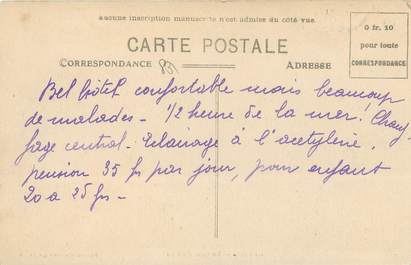 aucune inscription manuscrite n'est admise du côté vue
CARTE POSTALE
CORRESPONDANCE
ADRESSE
0 fr. 10
pour toute
CORRESPONDANCE
Bel hôtel confortable mais beaucoup
de malades - 1/2 heure de la mer! Chauf
fage central. Eclairage à l'acetylene.
pension 35 fs par jour, pour enfant
20 a 25 fs -